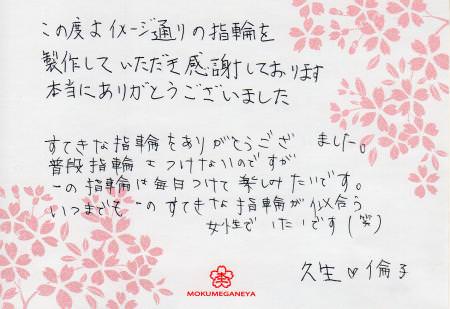 この度はイメージ通りの指輪を
製作していただき感謝しております
本当にありがとうございました
すてきな指輪をありがとうござ ました。
普段指輪をつけないのですが
この指輪は毎日つけて楽しみたいです。
いつまでもこのすてきな指輪が似合う
女性でいたいです(笑)
久生♡倫子
MOKUMEGANEYA